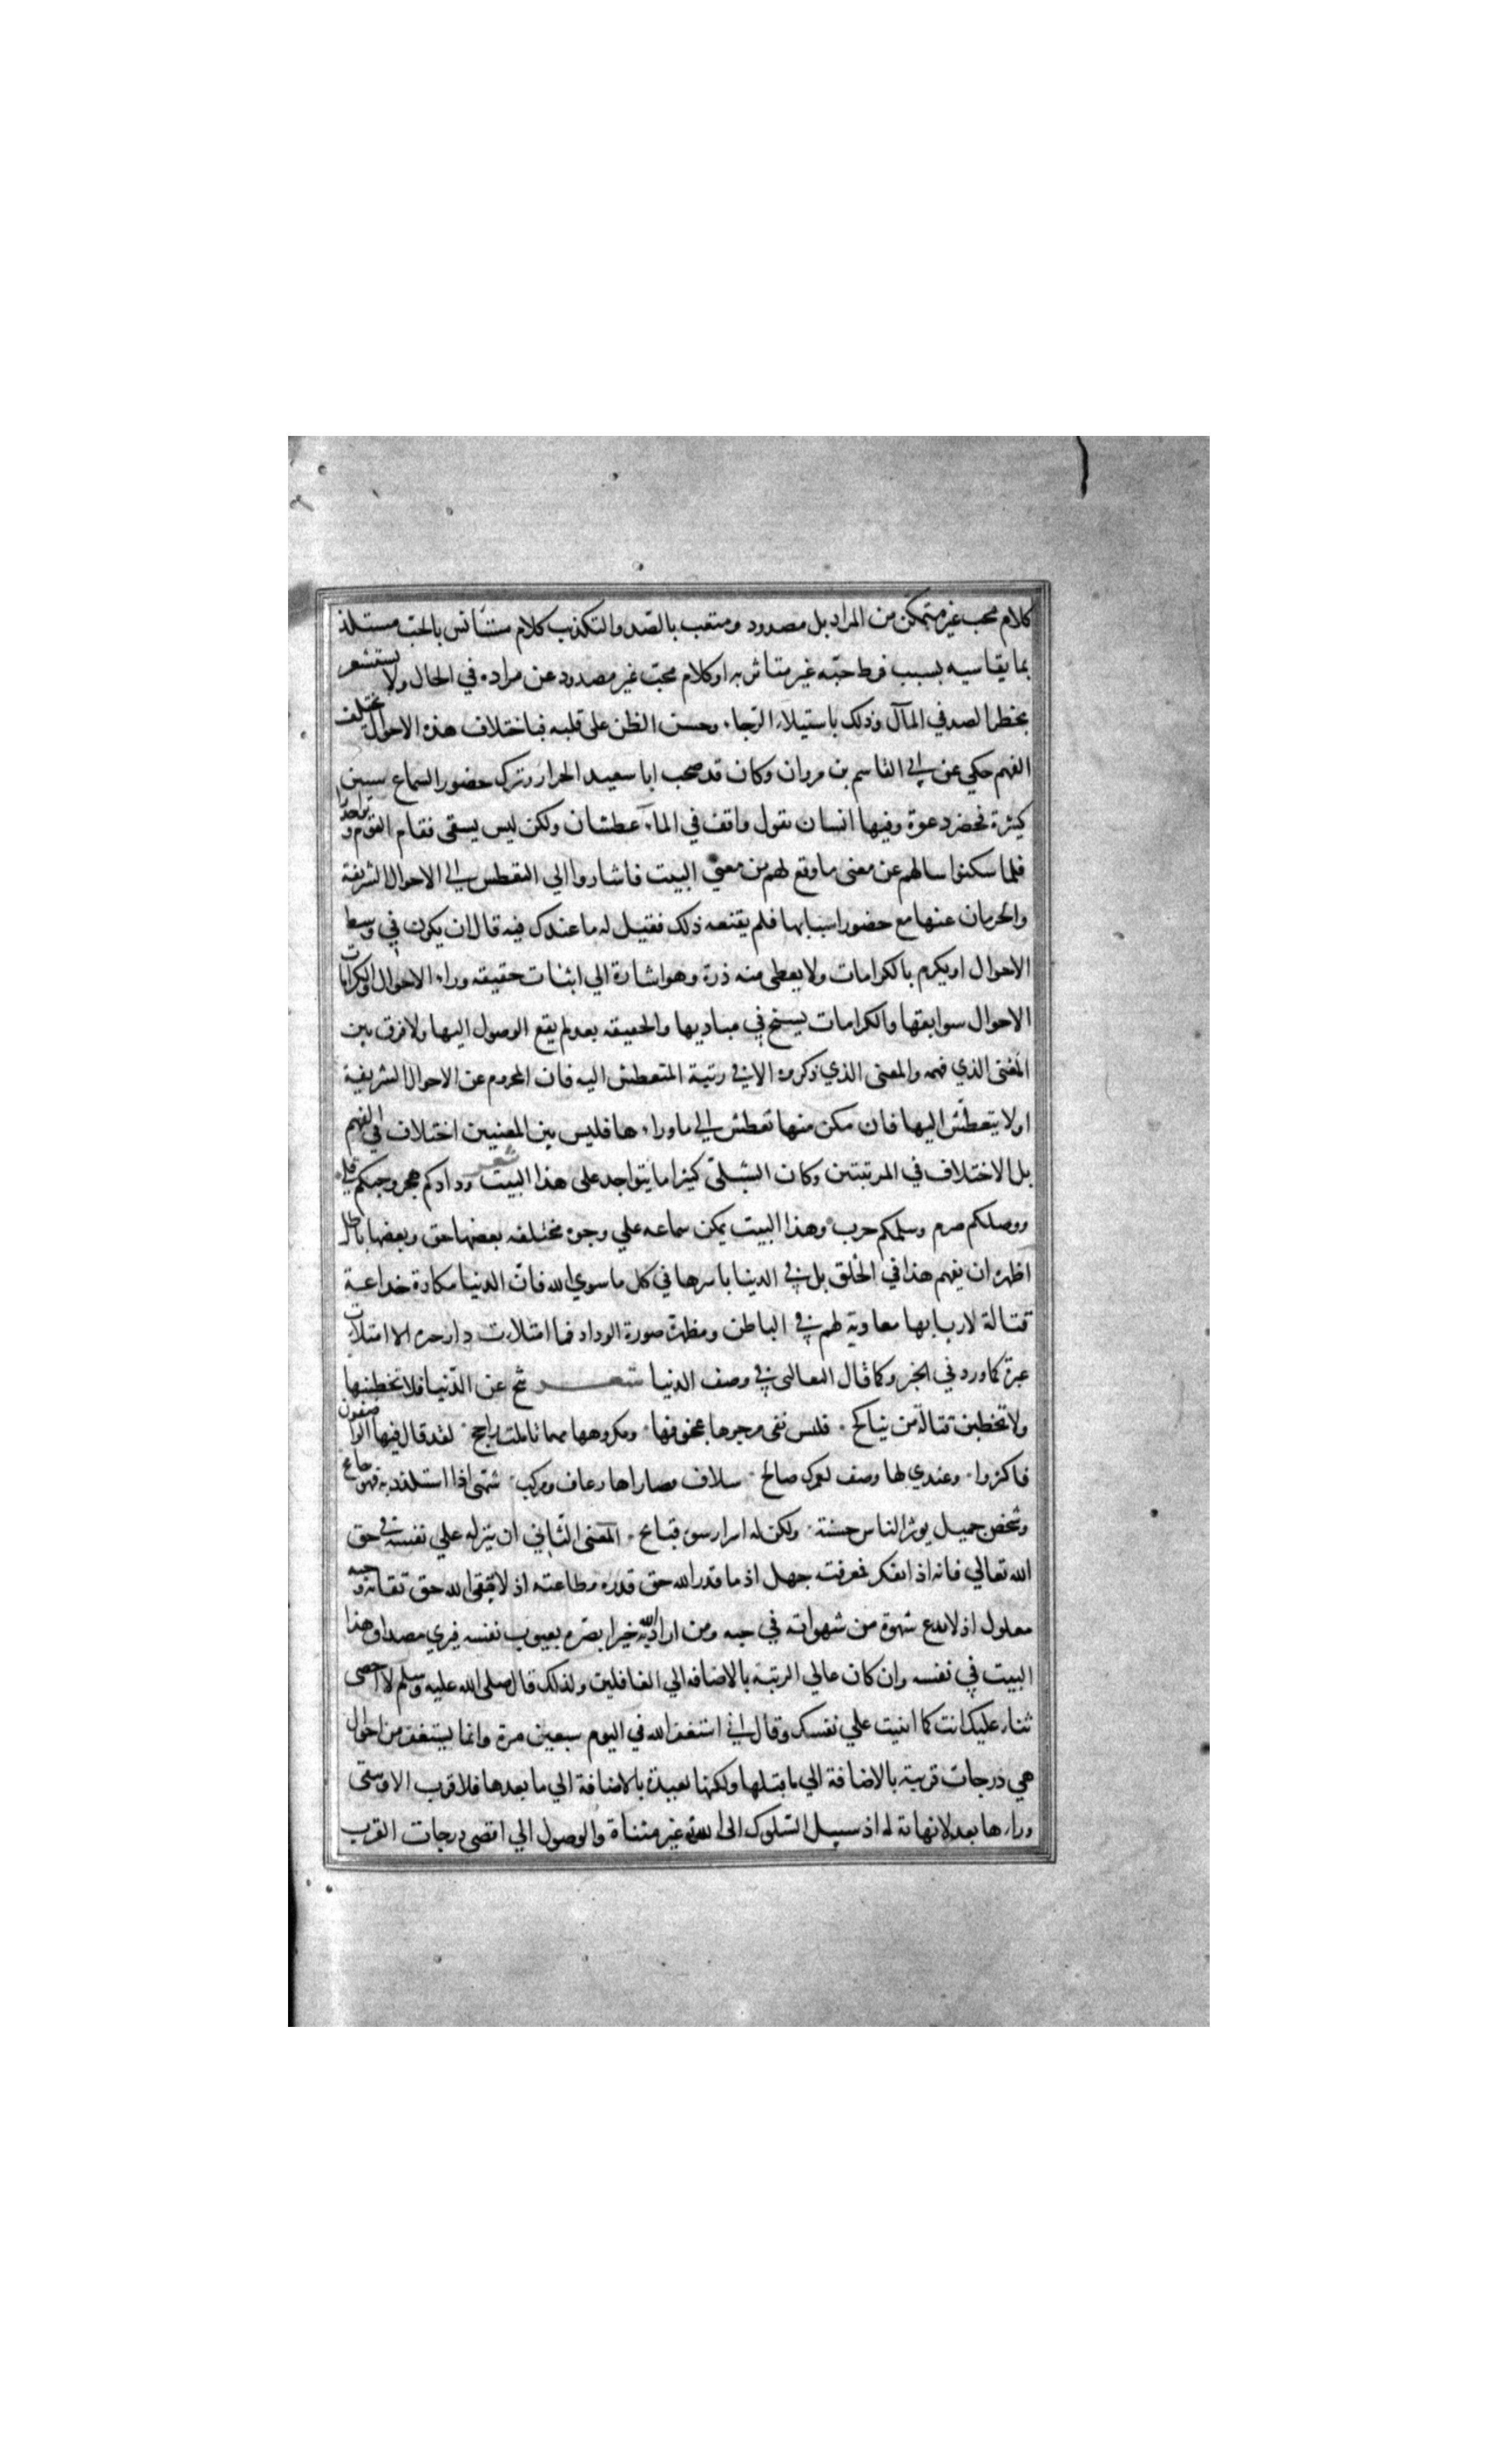 كلام محب غير متمكن من المراد بل مصدود ومتعب بالصد والتكذيب كلام مستأنس بالحب مستلذ
بما يقاسيه بسبب فرط حبه غير متاثر به او كلام محب غير مصدود عن مراده في الحال ولا يستشعر
بخطر الصد في المآل وذلك باستيلاء الرجاء وحسن الظن على قلبه فباختلاف هذه الاحوال يختلف
الفهم حكي عن ابي القاسم بن مروان وكان قد صحب ابا سعيد الخراز وترك حضور السماع سنين
كثيرة فحضر دعوة وفيها انسان يقول واقف في الماء عطشان ولكن ليس يسقى فقام القوم وتواجدوا
فلما سكنوا سالهم عن معنى ما وقع لهم من معنى البيت فاشاروا الي التعطش الى الاحوال الشريفة
والحرمان عنها مع حضور اسبابها فلم يقنعه ذلك فقيل له ما عندك فيه قال ان يكون في وسط
الاحوال او يكرم بالكرامات ولا يعطى منه ذرة وهو اشارة الي اثبات حقيقه وراء الاحوال والكرامات
الاحوال سوابقها والكرامات يسنح في مباديها والحقيقه بعد لم يقع الوصول اليها ولا فرق بين
المعنى الذي فهمه والمعنى الذي ذكروه الا في رتبة المتعطش اليه فان المحروم عن الاحوال الشريفة
اولا يتعطش اليها فان مكن منها تعطش الى ما وراء ها فليس بين المعنيين اختلاف في الفهم
بل الاختلاف في المرتبتين وكان الشبلى كثيرا ما يتواجد على هذا البيت شعر ودادكم هجر وحبكم قلى
ووصلكم صرم وسلمكم حرب وهذا البيت يمكن سماعه علي وجوه مختلفه بعضها حق وبعضها باطل
اظهره ان يفهم هذا في الخلق بل في الدنيا باسرها في كل ما سوي الله فان الدنيا مكارة خداعة
قتالة لاربابها معادية لهم في الباطن ومظهرة صورة الوداد فما امتلات دار حبره الا امتلات
عبرة كما ورد في الخبر وكما قال الثعالبى في وصف الدنيا شعر تنح عن الدنيا فلا تخطبنها
ولا تخطبن قتالة من يناكح فليس تفى مرجوها بمخوفها ومكروهها مهما تاملت راجح لقد قال فيها الواصفون
فاكثروا وعندي لها وصف لعمرك صالح سلاف قصاراها زعاف ومركب شهى اذا استلذذ به فهو جامح
وشخص جميل يوثر الناس حسنه ولكن له اسرار سوء قبايح المعنى الثاني ان ينزله علي نفسه في حق
الله تعالي فانه اذا تفكر فمعرفته جهل اذ ما قدر الله حق قدره وطاعته اذ لا يتقى الله حق تقاته وحبه
معلول اذ لا يدع شهوة من شهواته في حبه ومن اراد الله به خيرا بصره بعيوب نفسه فيري مصداق هذا
البيت في نفسه وان كان عالي الرتبة بالاضافه الي الغافلين ولذلك قال صلى الله عليه وسلم لا احصى
ثناء عليك انت كما اثنيت علي نفسك وقال اني استغفر الله في اليوم سبعين مرة وانما يستغفر من احوال
هي درجات قريبة بالاضافة الي ما قبلها ولكنها بعيدة بالاضافة الي ما بعدها فلا قرب الا ويبقى
وراء ها بعد لا نهاية له اذ سبيل السلوك الى الله غير متناة والوصول الي اقصى درجات القرب